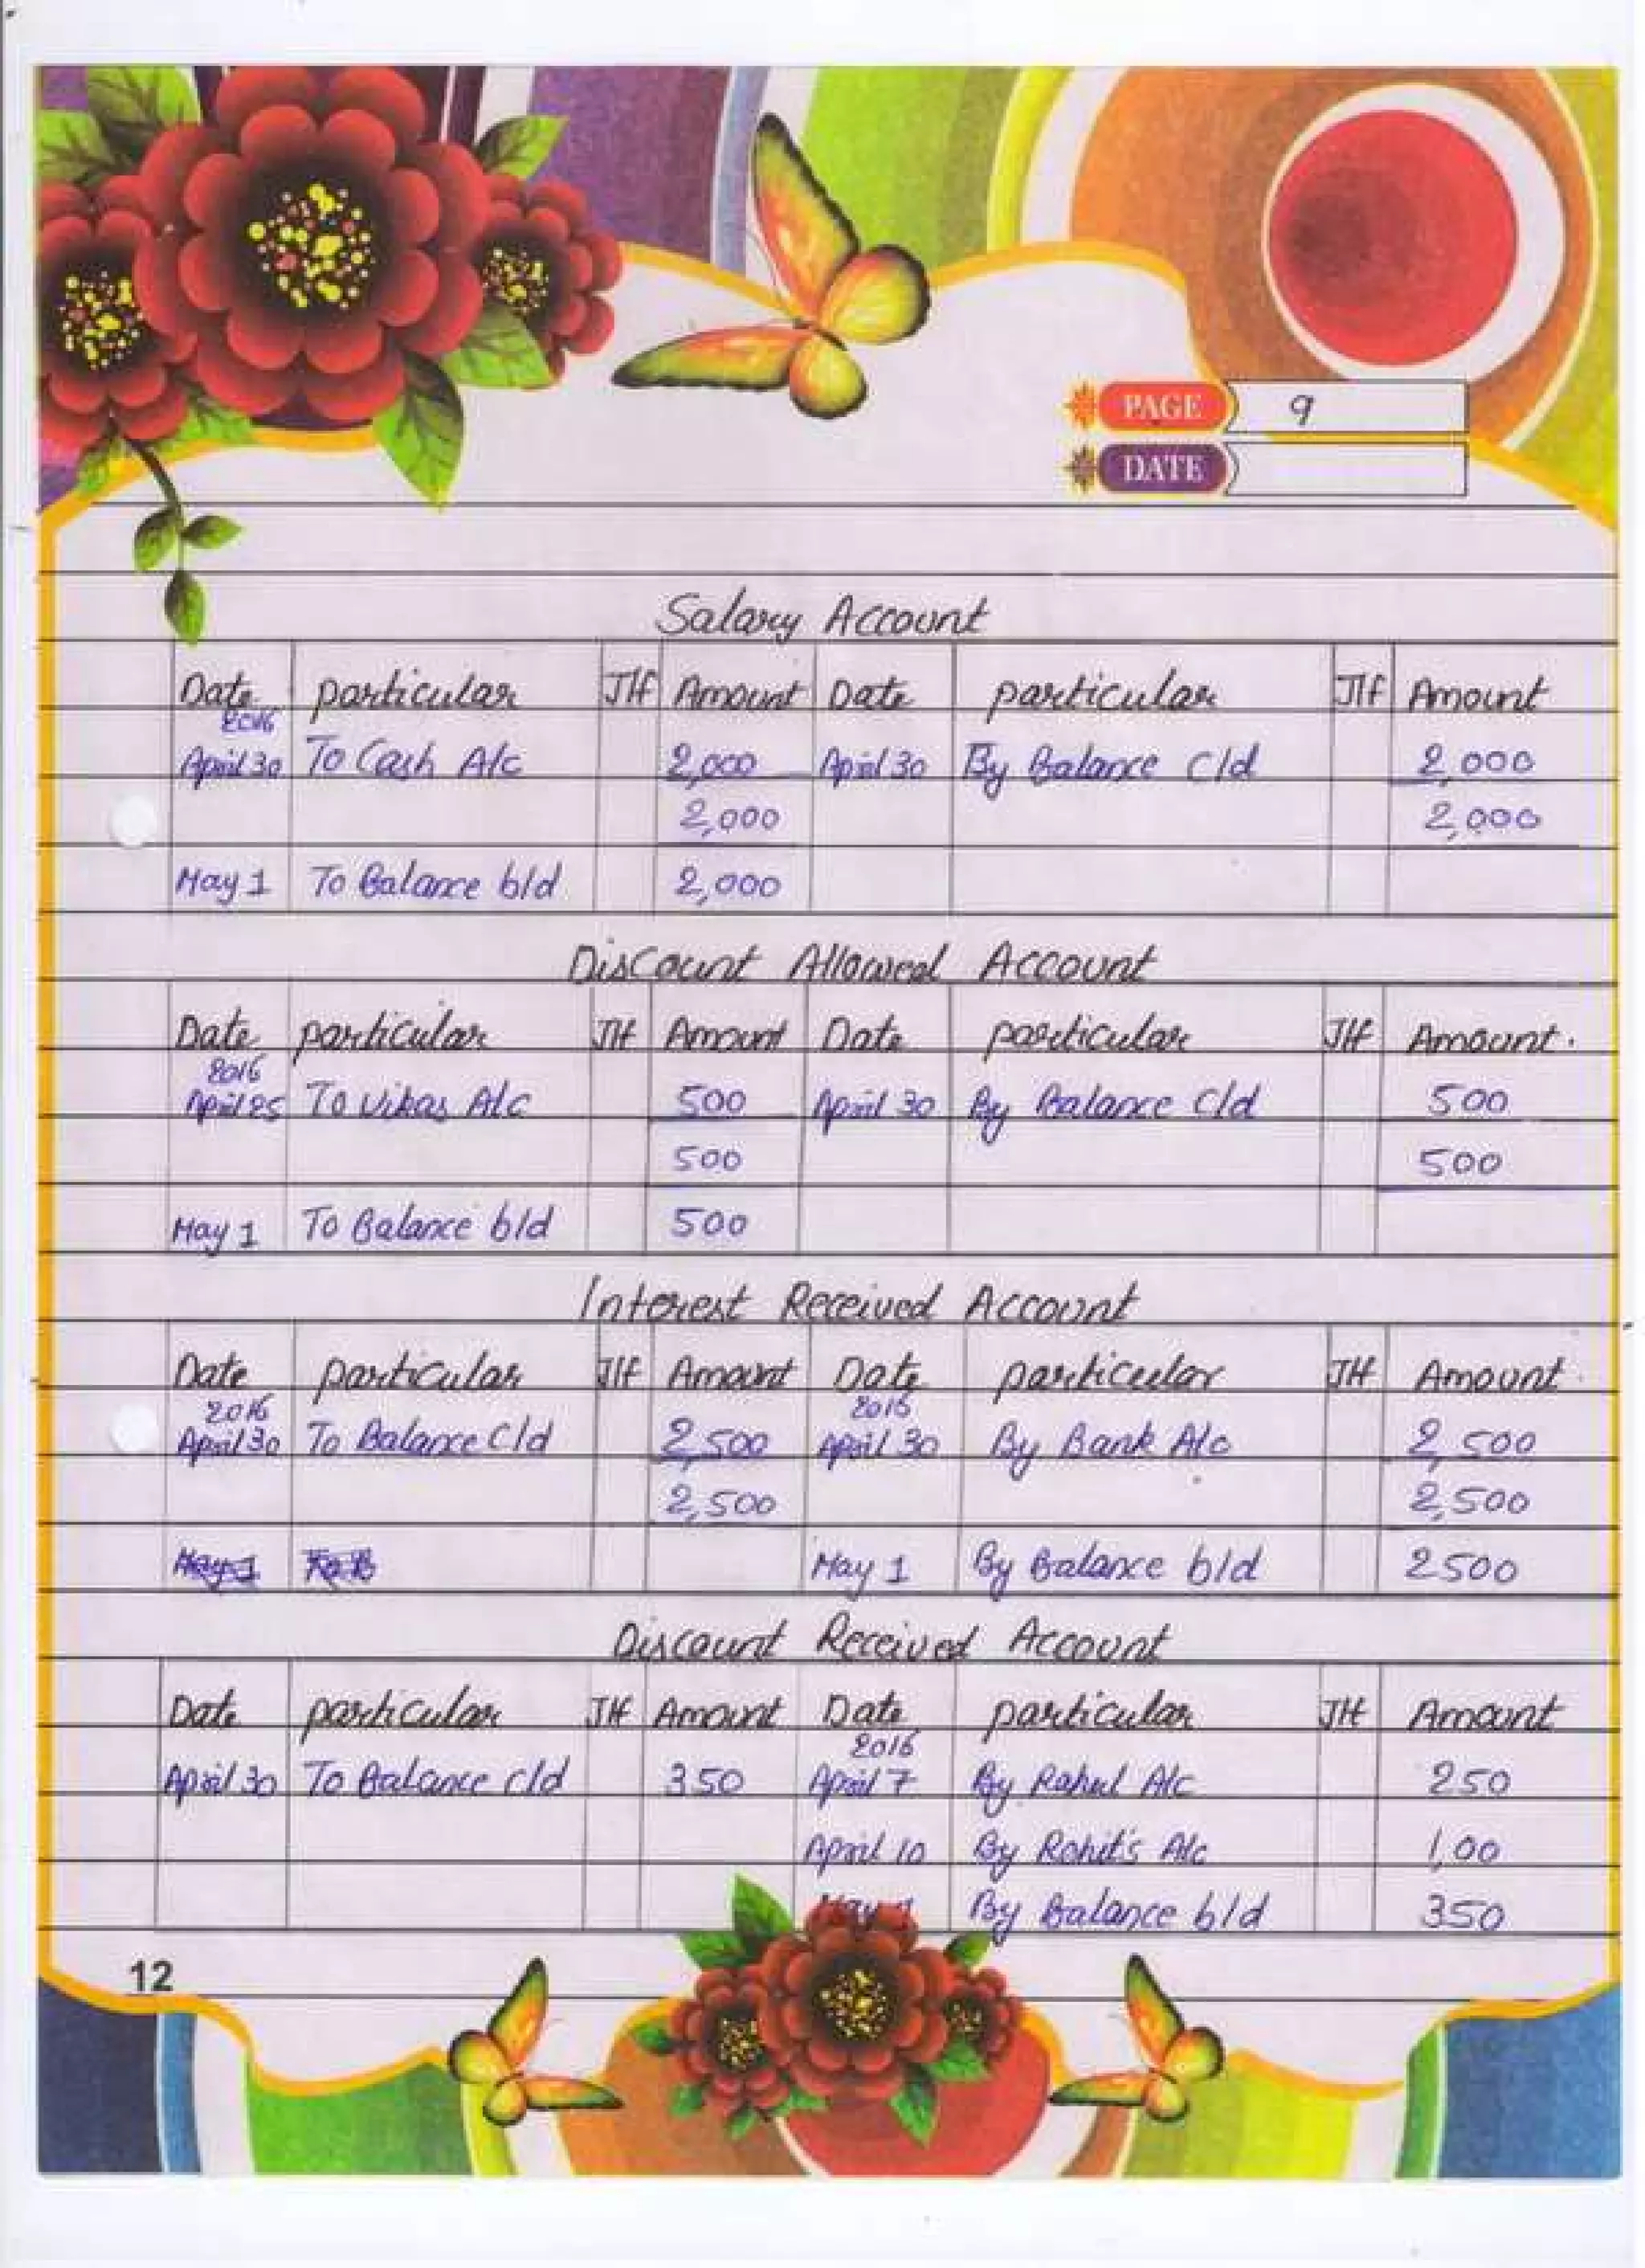 PAGE 9
DATE
Salary Account
Date particular J/f Amount Date particular J/f Amount
2016
April 30 To Cash A/c 2,000 April 30 By Balance c/d 2,000
2,000 2,000
May 1 To Balance b/d 2,000
Discount Allowed Account
Date particular J/f Amount Date particular J/f Amount.
2016
April 25 To Vikas A/c 500 April 30 By Balance c/d 500
500 500
May 1 To Balance b/d 500
Interest Received Account
Date particular J/f Amount Date particular J/f Amount
2016 2016
April 30 To Balance c/d 2,500 April 30 By Bank A/c 2,500
2,500 2,500
May 1 To B May 1 By Balance b/d 2500
Discount Received Account
Date particular J/f Amount Date particular J/f Amount
2016
April 30 To Balance c/d 350 April 7 By Rahul A/c 250
April 10 By Rohit's A/c 1,00
May 1 By Balance b/d 350
12